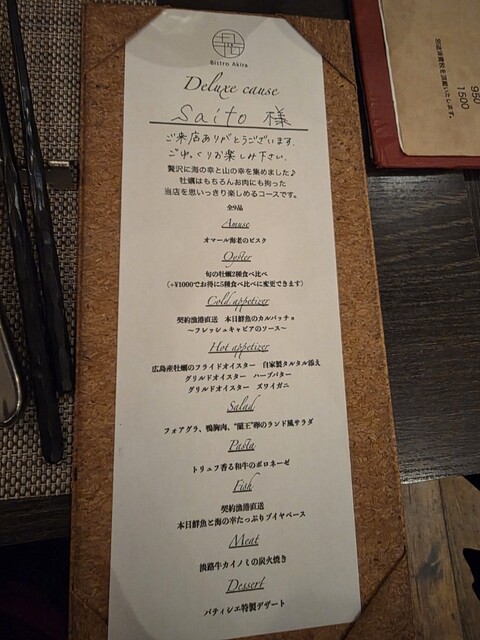 Bistro Akira
Deluxe cause
Saito 様
ご来店ありがとうございます.
ごゆっくりお楽しみ下さい.
贅沢に海の幸と山の幸を集めました♪
牡蠣はもちろんお肉にも拘った
当店を思いっきり楽しめるコースです。
全9品
Amuse
オマール海老のビスク
Oyster
旬の牡蠣2種食べ比べ
（+¥1000でお得に5種食べ比べに変更できます）
Cold appetizer
契約漁港直送　本日鮮魚のカルパッチョ
～フレッシュキャビアのソース～
Hot appetizer
広島産牡蠣のフライドオイスター　自家製タルタル添え
グリルドオイスター　ハーブバター
グリルドオイスター　ズワイガニ
Salad
フォアグラ、鴨胸肉、“龍王”卵のランド風サラダ
Pasta
トリュフ香る和牛のボロネーゼ
Fish
契約漁港直送
本日鮮魚と海の幸たっぷりブイヤベース
Meat
淡路牛カイノミの炭火焼き
Dessert
パティシエ特製デザート
950
1500
別途消費税を頂戴いたします。